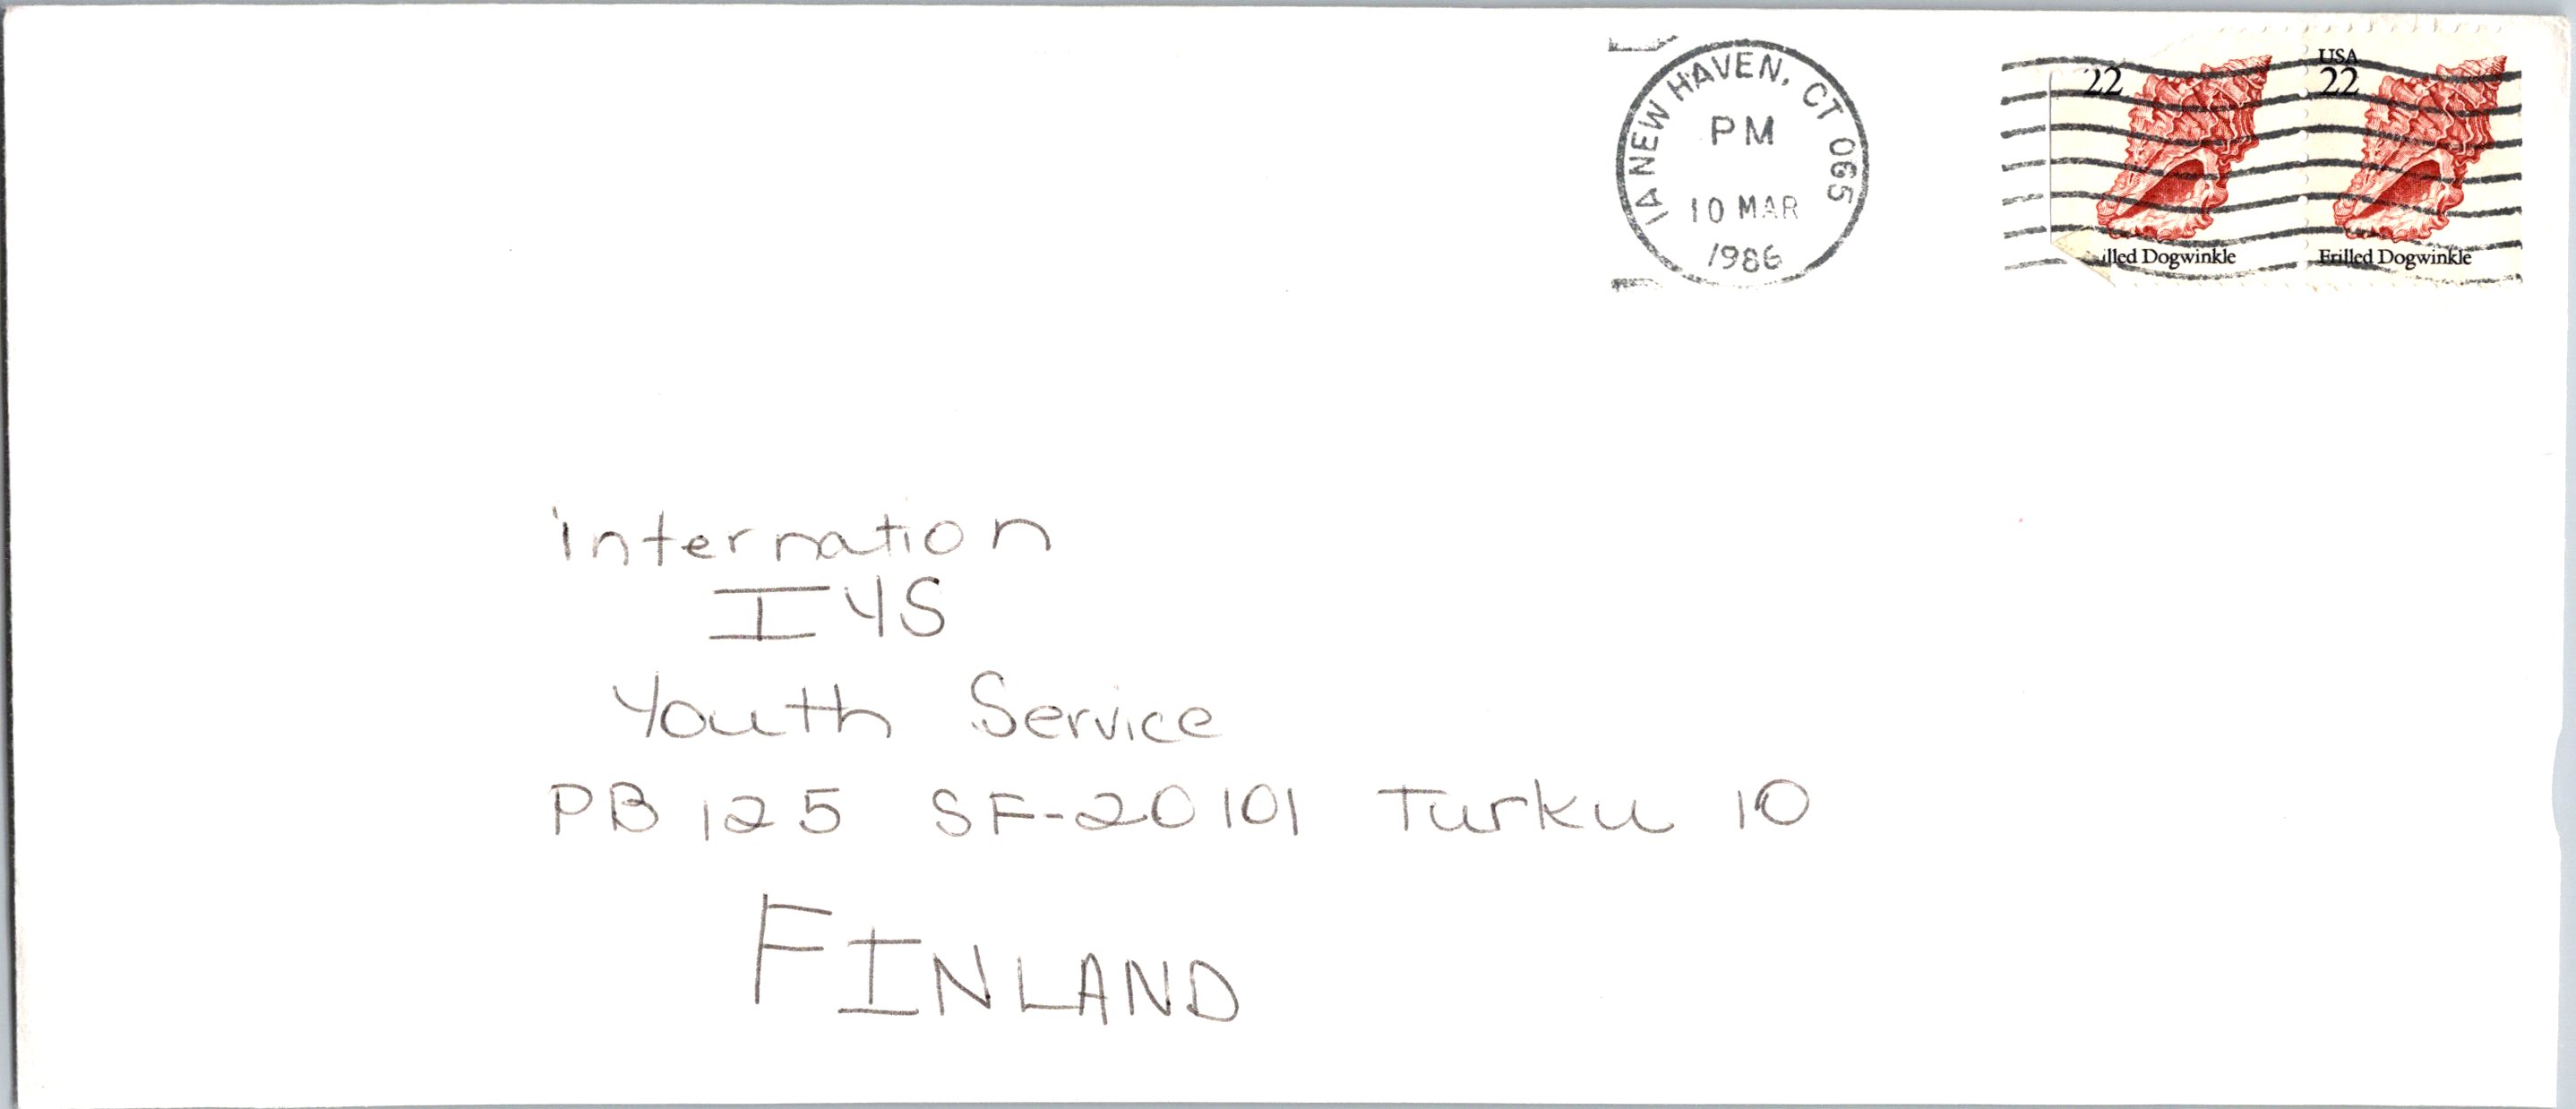 1A NEW HAVEN, CT 065
PM
10 MAR
1986
22
illed Dogwinkle
USA
22
Frilled Dogwinkle
Internation
IYS
Youth Service
PB 125 SF-20101 Turku 10
FINLAND